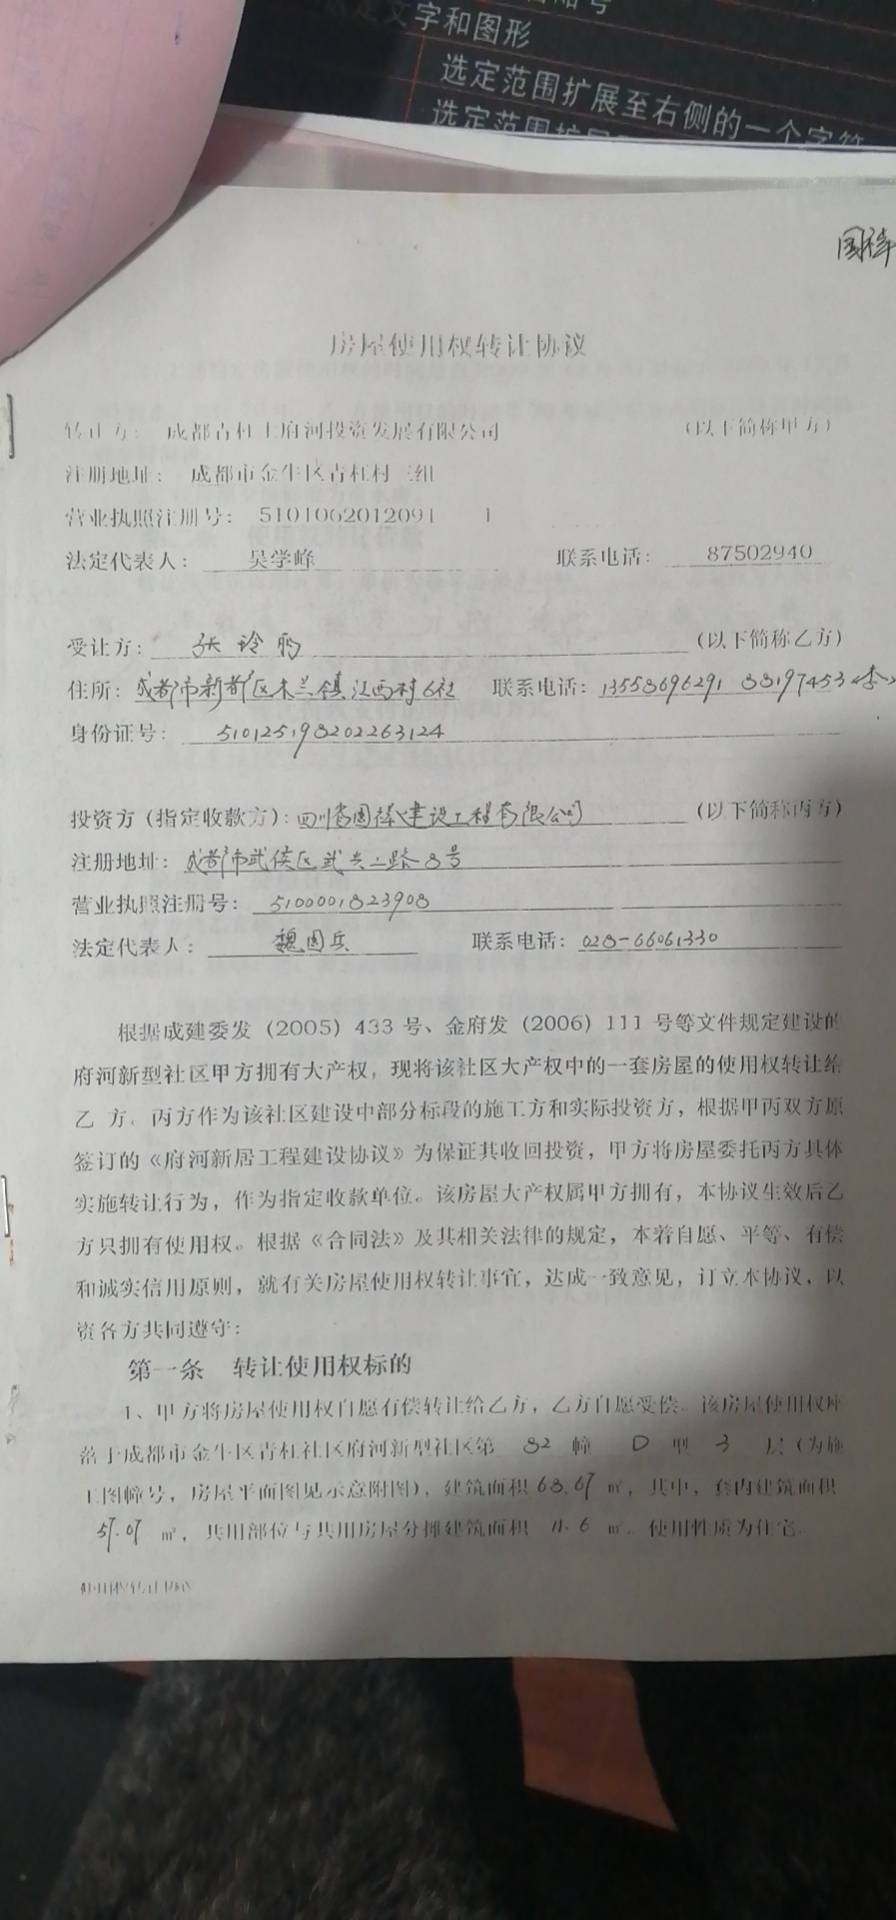 文字和图形
选定范围扩展至右侧的一个字符
选定范围扩展
国祥
房屋使用权转让协议
转让方： 成都青杠土府河投资发展有限公司 （以下简称甲方）
注册地址： 成都市金牛区青杠村三组
营业执照注册号： 5101062012091 1
法定代表人： 吴学峰 联系电话： 87502940
受让方： 张玲 （以下简称乙方）
住所：成都市新都区木兰镇江西村6社 联系电话：13558696291 88197453
身份证号： 510125198202263124
投资方（指定收款方）：四川省国祥建设工程有限公司 （以下简称丙方）
注册地址：成都市武侯区武兴二路8号
营业执照注册号： 5100001823908
法定代表人： 魏国兵 联系电话：028-66061330
根据成建委发（2005）433 号、金府发（2006）111 号等文件规定建设的
府河新型社区甲方拥有大产权，现将该社区大产权中的一套房屋的使用权转让给
乙 方。丙方作为该社区建设中部分标段的施工方和实际投资方，根据甲丙双方原
签订的《府河新居工程建设协议》为保证其收回投资，甲方将房屋委托丙方具体
实施转让行为，作为指定收款单位。该房屋大产权属甲方拥有，本协议生效后乙
方只拥有使用权。根据《合同法》及其相关法律的规定，本着自愿、平等、有偿
和诚实信用原则，就有关房屋使用权转让事宜，达成一致意见，订立本协议，以
资各方共同遵守：
第一条 转让使用权标的
1、甲方将房屋使用权自愿有偿转让给乙方，乙方自愿受偿。该房屋使用权座
落于成都市金牛区青杠社区府河新型社区第 82 幢 D 型 3 层（为施
工图幢号，房屋平面图见示意附图），建筑面积68.67 ㎡，其中，套内建筑面积
57.07 ㎡，共用部位与共用房屋分摊建筑面积 11.6 ㎡。使用性质为住宅。